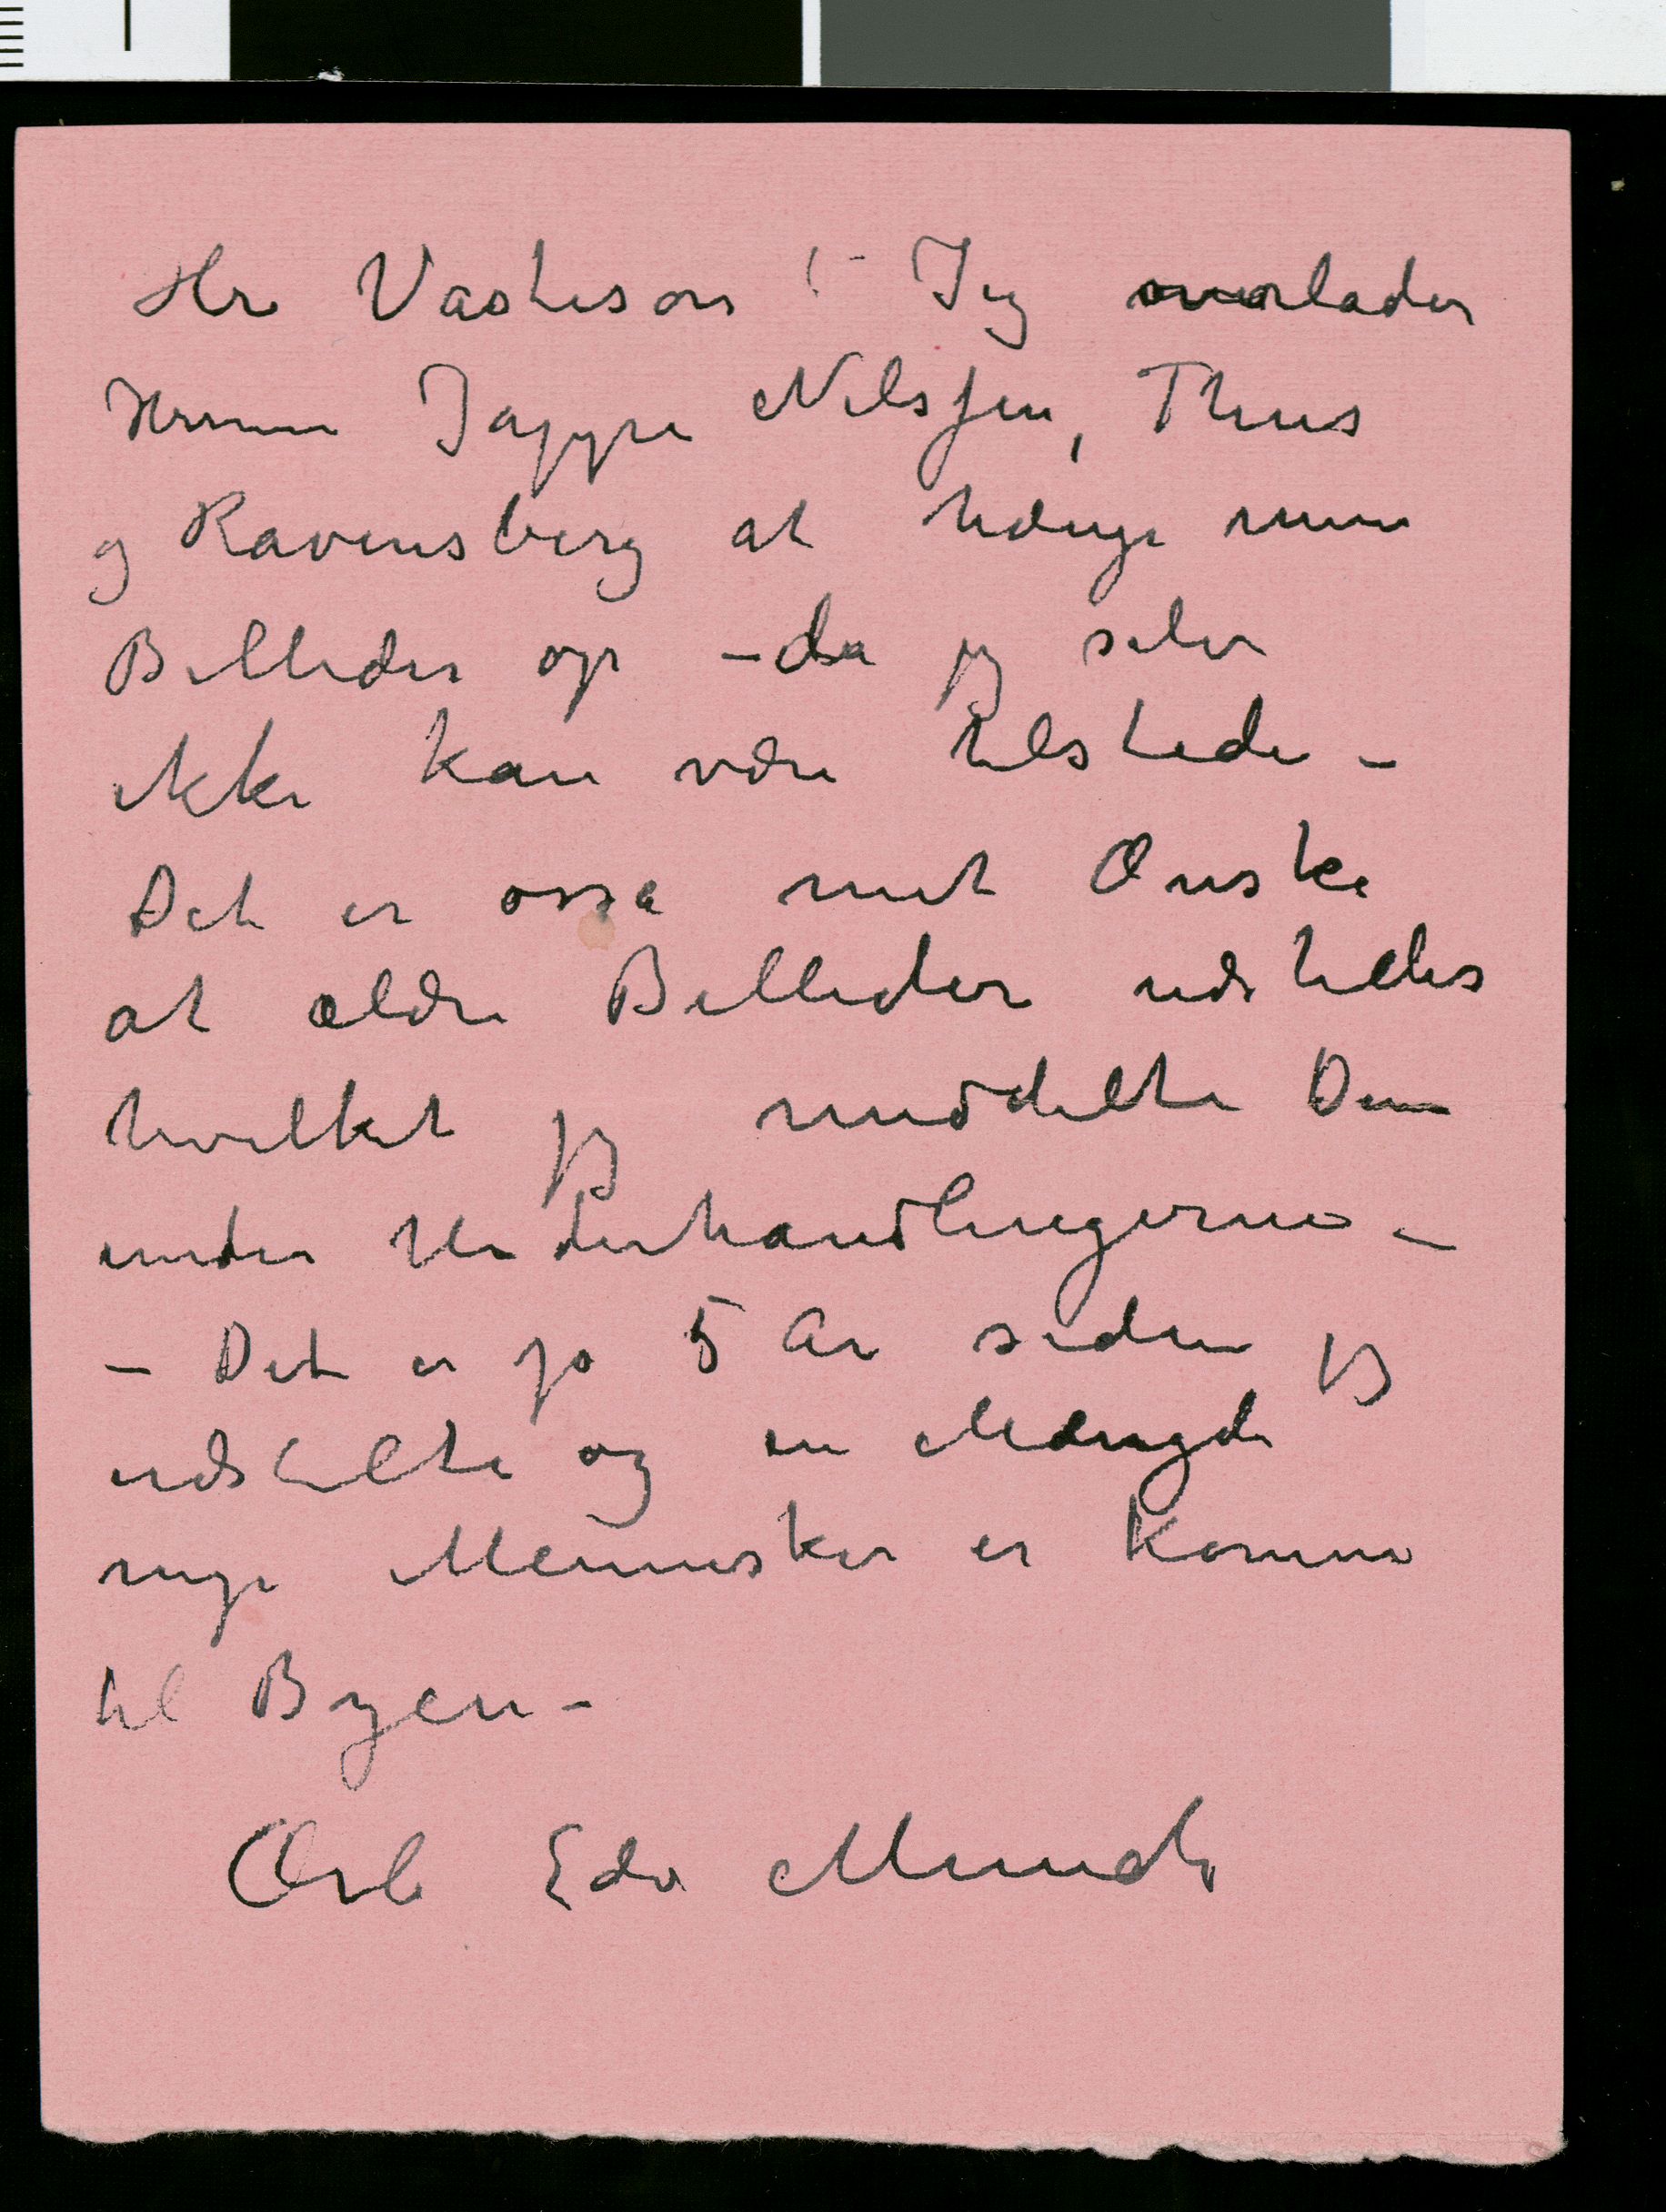 Hr Vastesons! Jeg overlader
Herrene Jappe Nilssen, Thiis
og Ravensberg at hænge mine
Billeder op – da jeg selv
ikke kan være tilstede –
Det er osså mit Ønske
at ældre Billeder udstilles
hvilket jeg meddelte Dem
under Underhandlingerne –
– Det er jo 5 År siden jeg
udstilte og en Mængde
nye Mennesker er komne
til Byen –
Ærb Edv Munch